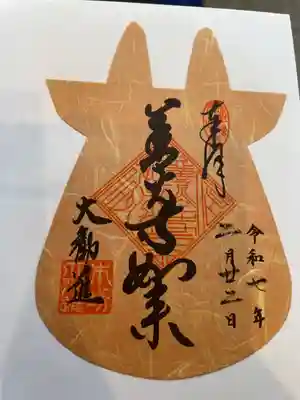 奉拝
令和七年
二月廿二日
善光寺如来
大勧進